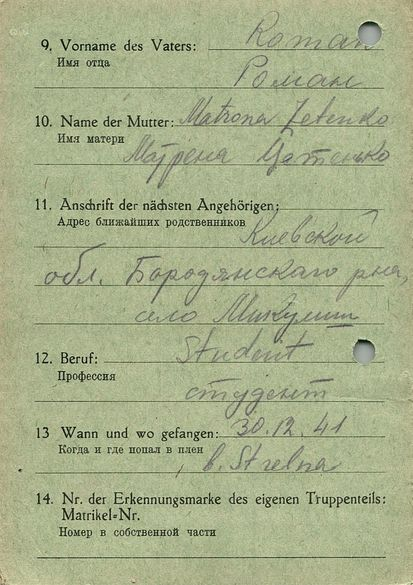 9. Vorname des Vaters: Roman
Имя отца
Роман
10. Name der Mutter: Matrona Zetenko
Имя матери
Матрена Цатенько
11. Anschrift der nächsten Angehörigen:
Адрес ближайших родственников
Киевской
обл. Бородянскаго рна,
село Микулиш
12. Beruf: Student
Профессия
студент
13 Wann und wo gefangen: 30.12.41
Когда и где попал в плен
b. Strelna
14. Nr. der Erkennungsmarke des eigenen Truppenteils:
Matrikel=Nr.
Номер в собственной части